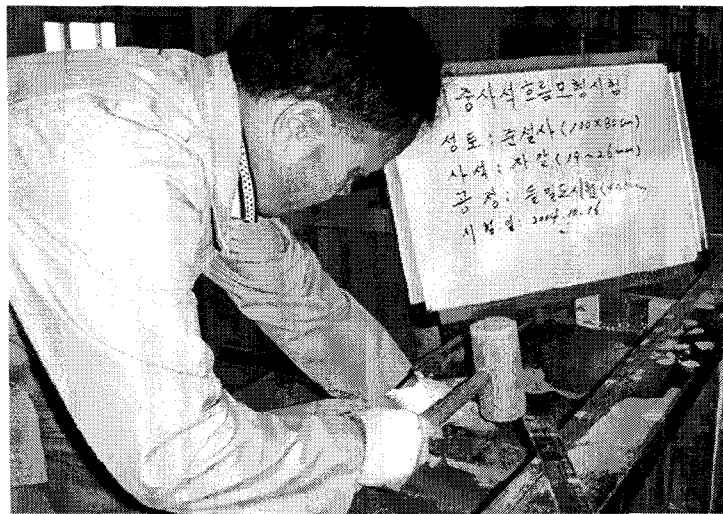 중사석 흐름모형시험
성토 : 준설사 (100×80cm)
사석 : 자갈 (19~26mm)
공정 : 들밀도시험
시험일 : 2004. 10. 16